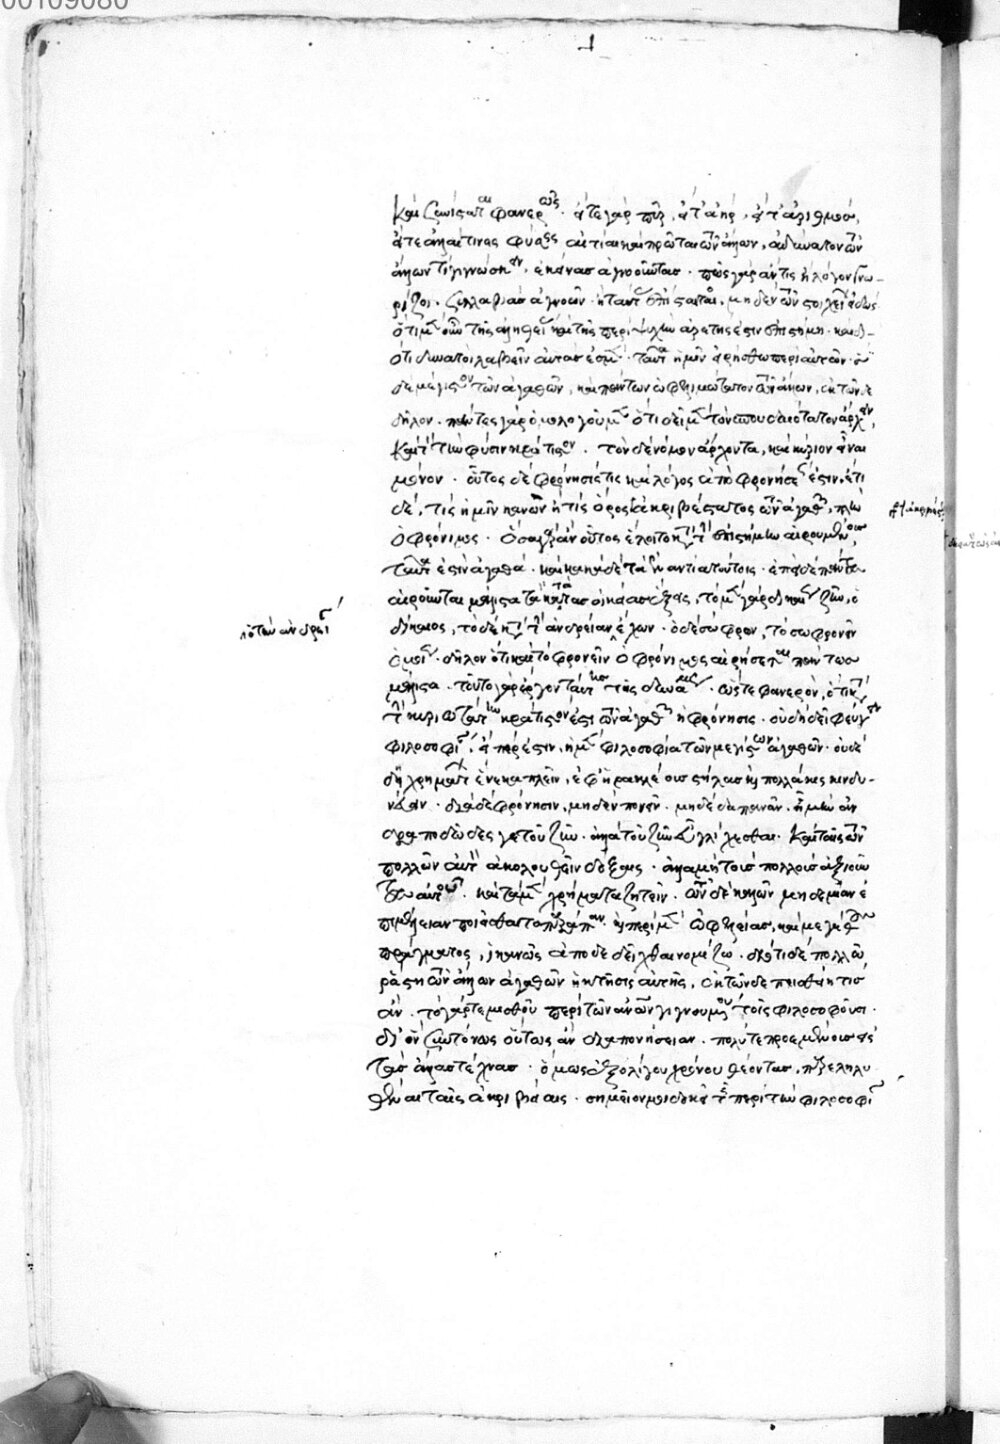 καὶ ζῶα συνίσταται φανερῶς. εἴτε γὰρ πῦρ, εἴτ' ἀὴρ, εἴτ' ἀριθμὸς,
εἴτε ἄλλαι τινες φύσεις αἰτίαι καὶ πρῶται τῶν ἄλλων, ἀδύνατον τῶν
ἄλλων τί γιγνώσκειν, ἐκείνας ἀγνοοῦντας. πῶς γὰρ ἄν τις ἢ λόγον γνω-
ρίζοι. συλλαβὰς ἀγνοῶν. ἢ ταύτας ἐπίσταιτο, μηδὲν τῶν στοιχείων εἰδώς
ὅτι μὲν οὖν τῆς ἀληθείας καὶ τῆς περὶ ψυχὴν ἀρετῆς ἐστιν ἐπιστήμη. καὶ δι-
ότι δυνατοὶ λαβεῖν αὐτάς ἐσμεν. ταῦτα ἡμῖν εἰρήσθω περὶ αὐτῶν.
δὲ μέγιστον τῶν ἀγαθῶν, καὶ πάντων ὠφελιμώτατον τῶν ἄλλων, ἐκ τῶνδε
δῆλον. πάντες γὰρ ὁμολογοῦμεν ὅτι δεῖ μὲν τὸν σπουδαιότατον ἄρχειν,
καὶ τὸν τὴν φύσιν κράτιστον. τὸν δὲ νόμον ἄρχοντα, καὶ κύριον εἶναι
μόνον. οὗτος δὲ φρόνησίς τις καὶ λόγος ἀπὸ φρονήσεώς ἐστιν. ἔτι
δέ, τίς ἡμῖν κανὼν ἢ τίς ὅρος ἀκριβέστατος τῶν ἀγαθῶν, πλὴν
ὁ φρόνιμος. ὅσα γὰρ ἂν οὗτος ἕλοιτο κατὰ τὴν ἐπιστήμην αἱρούμενος,
ταῦτα ἐστιν ἀγαθά. καὶ κακὰ δὲ τὰ ἐναντία τούτοις. ἐπεὶ δὲ πάντες
αἱροῦνται μάλιστα τὰ κατὰ τὰς οἰκείας ἕξεις, τὸ μὲν γὰρ δικαίως ζῆν, ὁ
δίκαιος, τὸ δὲ κατὰ τὴν ἀνδρείαν ἔχων. ὁ δὲ σώφρων, τὸ σωφρονεῖν
ὁμοίως. δῆλον ὅτι καὶ τὸ φρονεῖν ὁ φρόνιμος αἱρήσεται πάντων
μάλιστα. τοῦτο γὰρ ἔργον ταύτης τῆς δυνάμεως. ὥστε φανερὸν, ὅτι κατὰ
τὴν κυριωτάτην κράτιστόν ἐστι τῶν ἀγαθῶν ἡ φρόνησις. οὐ δὴ δεῖ φεύγειν
φιλοσοφίαν, εἴπερ ἐστὶν, ἡ μὲν φιλοσοφία τῶν μεγίστων ἀγαθῶν. οὐδὲ
δεῖ χρημάτων ἕνεκα πλεῖν, ἐφ' ἡρακλέους στήλας καὶ πολλάκις κινδυ-
νεύειν. διὰ δὲ φρόνησιν, μηδὲν πονεῖν. μηδὲ δαπανᾶν. ἦ μὴν ἀν
δραποδῶδές γε τοῦ ζῆν. ἀλλὰ τοῦ ζῆν εὖ γλίχεσθαι. καὶ ταῖς τῶν
πολλῶν αὐτὸν ἀκολουθεῖν δόξαις. ἀλλὰ μὴ τοὺς πολλοὺς ἀξιοῦν
ταῖς αὐτοῦ. καὶ τὰ μὲν χρήματα ζητεῖν. τῶν δὲ καλῶν μηδεμίαν ἐ
πιμέλειαν ποιεῖσθαι τοπαράπαν. καὶ περὶ μὲν ὠφελείας, καὶ μεγέθους
πράγματος, ἱκανῶς ἀποδεδεῖχθαι νομίζω. διότι δὲ πολλῶ
ράστη τῶν ἄλλων ἀγαθῶν ἡ κτῆσις αὐτῆς, ἐκ τῶνδε πεισθείη τις
ἄν. τὸ γὰρ μήτε μισθοῦ παρὰ τῶν ἀνθρώπων γιγνομένου τοῖς φιλοσοφοῦσι.
δι' ὃν συντόνως οὕτως ἂν διαπονήσειαν. πολύ τε προεμένους εἰς
τὰς ἄλλας τέχνας. ὅμως ἐξ ὀλίγου χρόνου θέοντας, παρεληλυ
θέναι ταῖς ἀκριβείαις. σημεῖόν μοι δοκεῖ τῆς περὶ τὴν φιλοσοφίαν